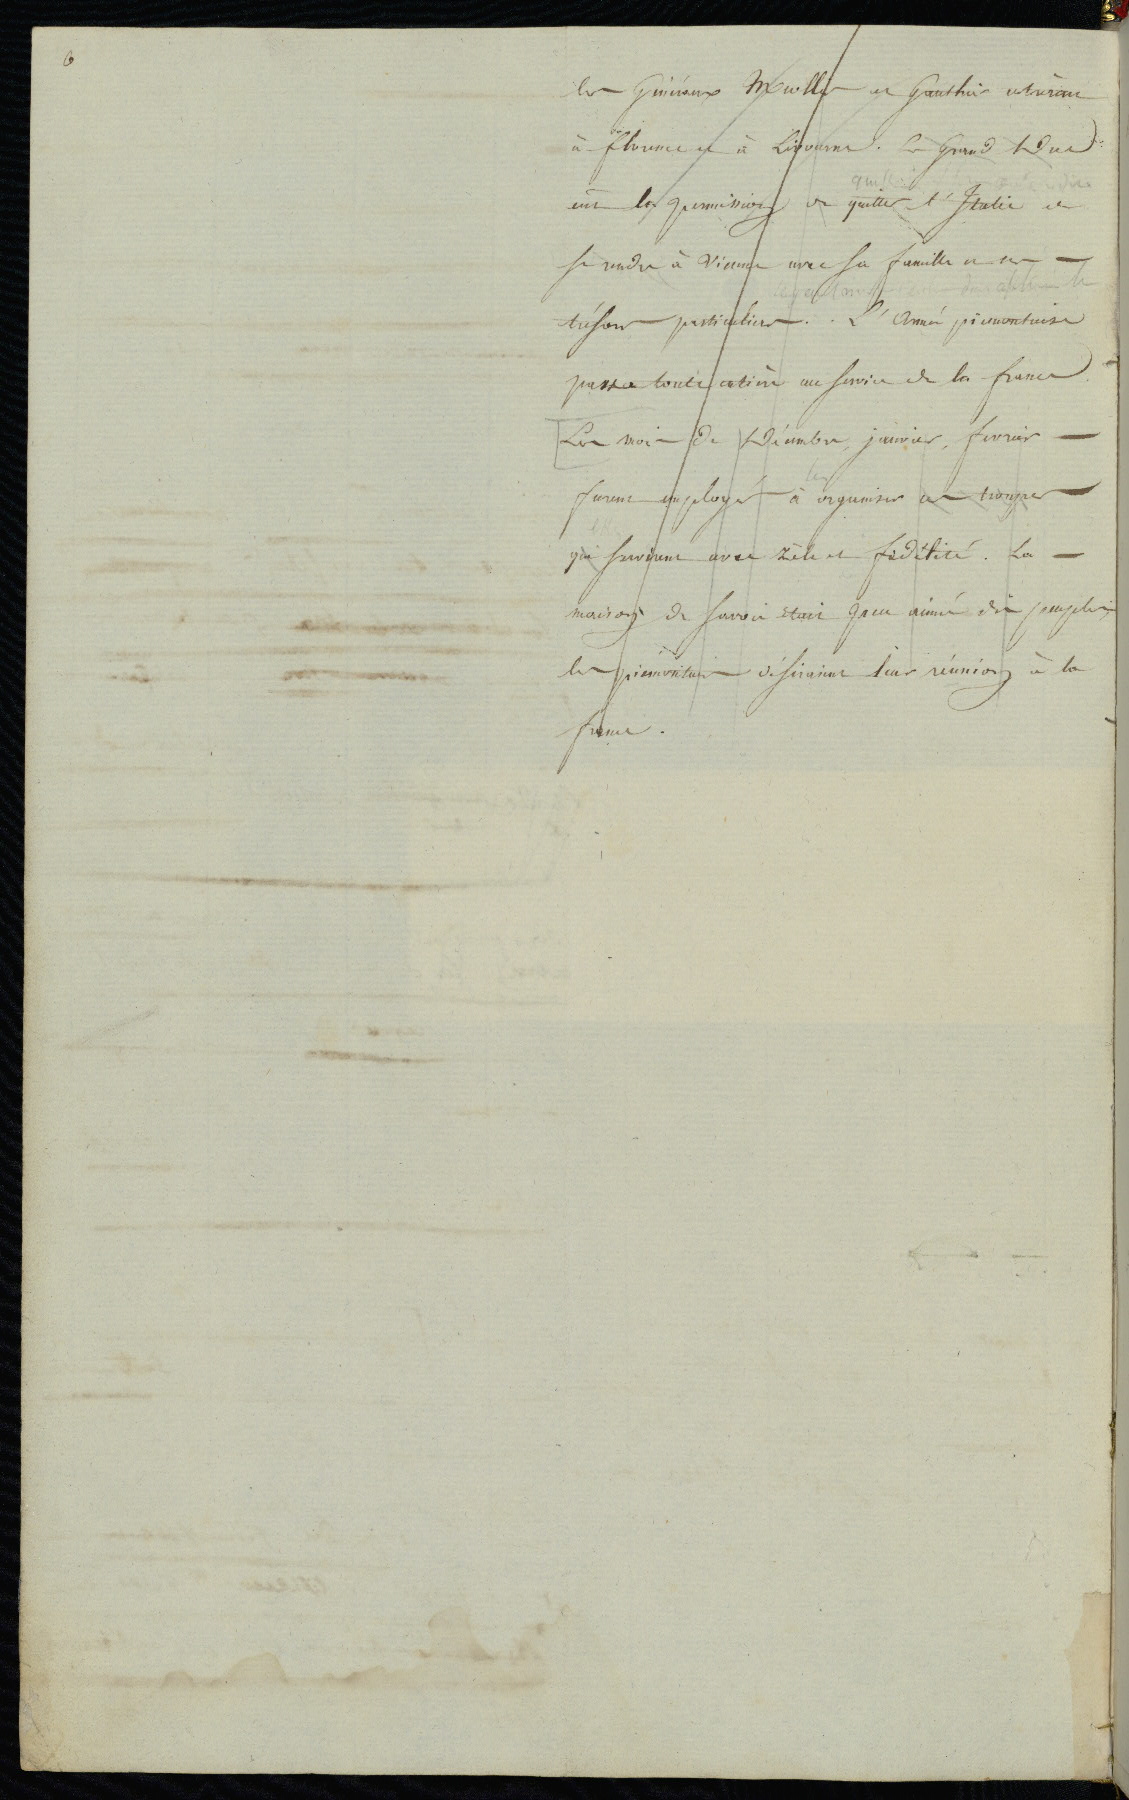 6
les Généraux Miollis et Gauthier entrèrent
à florence et à Livourne. Le Grand Duc
eut la permission de quitter l'Italie et
se rendre à Vienne avec sa famille et ses
trésors particuliers. L'armée piémontaise
passa toute entière au service de la france
Les mois de Décembre, janvier, fevrier
les
furent employés à organiser ces troupes
qui servirent avec zèle et fidélité. La
maison de Savoie etait peu aimée du peuple
les piémontais désiraient leur réunion à la
france.